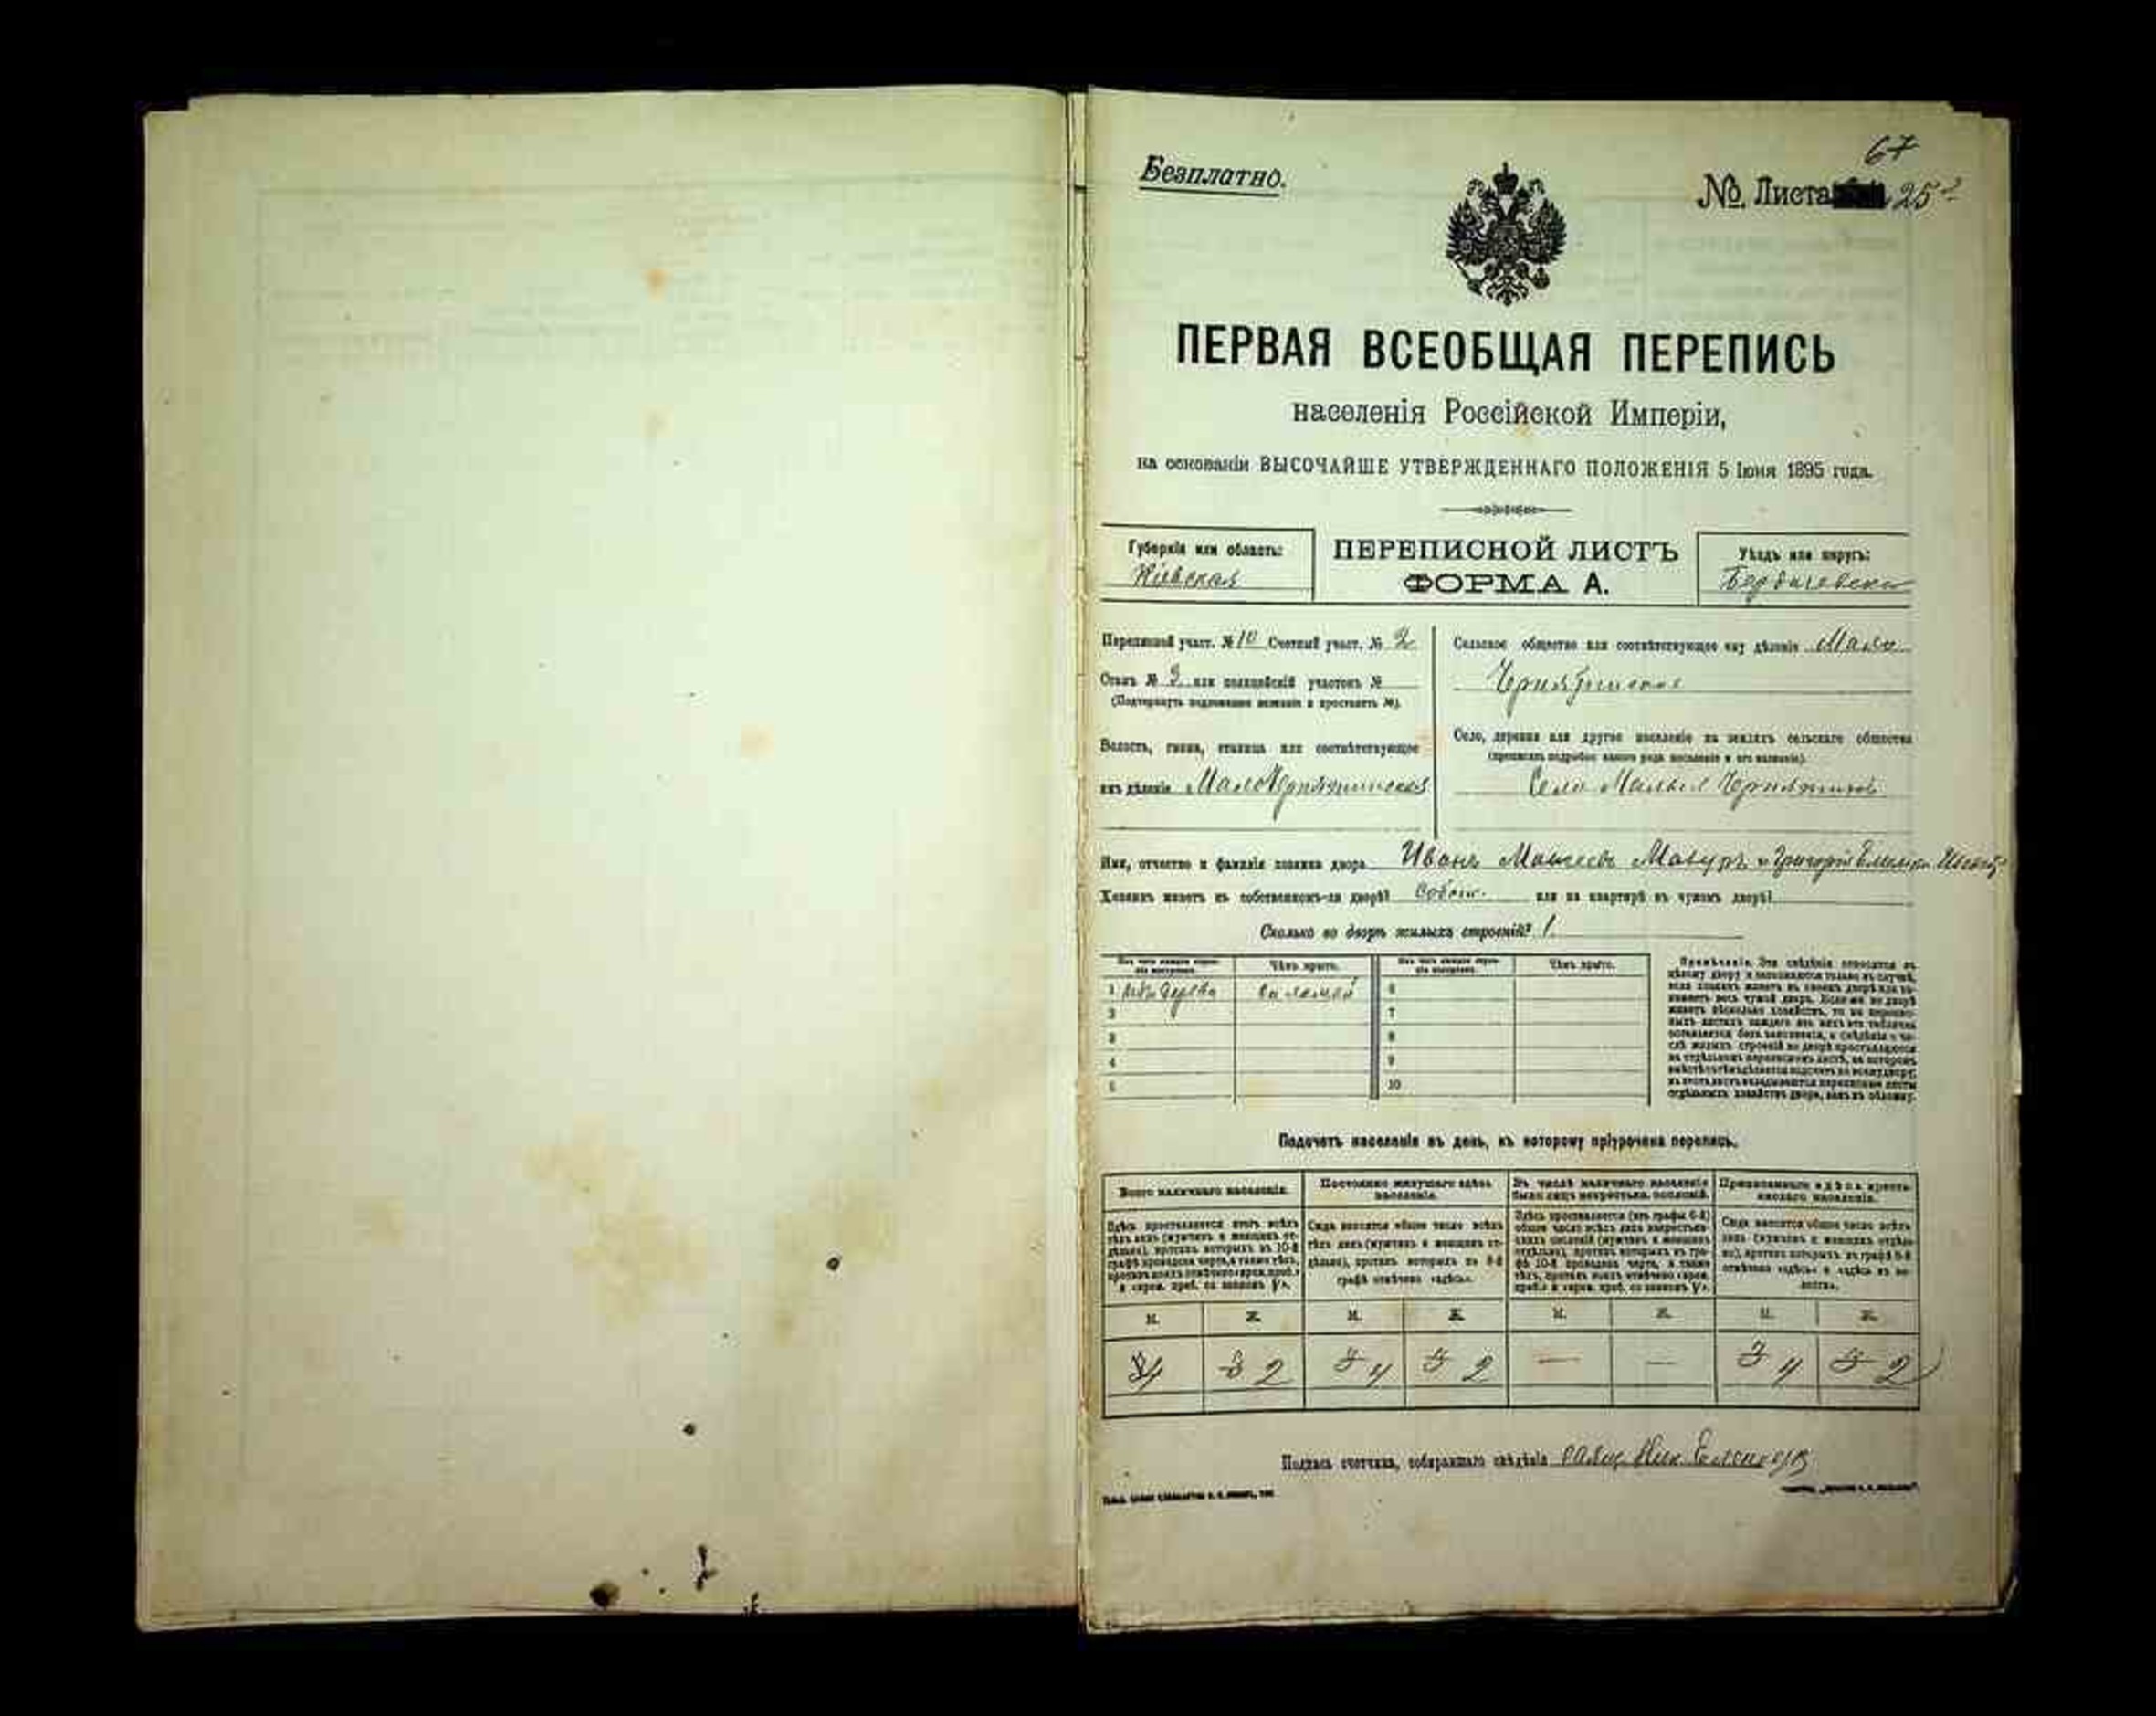 67
Безплатно.
№. Листа 25
ПЕРВАЯ ВСЕОБЩАЯ ПЕРЕПИСЬ
населенія Россійской Имперіи,
на основаніи ВЫСОЧАЙШЕ УТВЕРЖДЕННАГО ПОЛОЖЕНІЯ 5 Іюня 1895 года.
Губернія или область:
Кіевская
ПЕРЕПИСНОЙ ЛИСТЪ
ФОРМА А.
Уѣздъ или округъ:
Бердичевскій
Переписной участ. № 10 Счетный участ. № 2
Станъ № 3 или полицейскій участокъ №
(Подчеркнуть подлежащее названіе и проставить №).
Волость, гмина, станица или соотвѣтствующее
имъ дѣленіе Мало Чернятинская
Сельское общество или соотвѣтствующее ему дѣленіе Мало
Чернятинское
Село, деревня или другое поселеніе на земляхъ сельскаго общества
(прописать подробно какого рода поселеніе и его названіе).
Село Малые Чернятинцы
Имя, отчество и фамилія хозяина двора Иванъ Моисеевъ Мазуръ и Григорій
Хозяинъ живетъ въ собственномъ-ли дворѣ? собств. или на квартирѣ въ чужомъ дворѣ?
Сколько во дворѣ жилыхъ строеній? 1.
Изъ чего каждое строеніе выстроено. Чѣмъ крыто. Изъ чего каждое строеніе выстроено. Чѣмъ крыто.
1 изъ дерева соломой 6
2 7
3 8
4 9
5 10
Примѣчаніе. Эти свѣдѣнія относятся къ
цѣлому двору и заполняются только въ случаѣ,
если хозяинъ живетъ въ своемъ дворѣ или занимаетъ весь чужой дворъ. Если же во дворѣ
живетъ нѣсколько хозяйствъ, то на переписныхъ листахъ каждаго изъ нихъ эта табличка
оставляется безъ заполненія, а свѣдѣнія о числѣ жилыхъ строеній во дворѣ проставляются
на отдѣльномъ переписномъ листѣ, на которомъ
вмѣстѣ съ тѣмъ дѣлается подсчетъ по всему двору;
въ этотъ листъ вкладываются переписные листы
отдѣльныхъ хозяйствъ двора, какъ въ обложку.
Подсчетъ населенія въ день, къ которому пріурочена перепись.
Всего наличнаго населенія.
Постоянно живущаго здѣсь населенія.
Въ числѣ наличнаго населенія было лицъ некрестьян. сословій.
Приписаннаго здѣсь крестьянскаго населенія.
Здѣсь проставляется итогъ всѣхъ
тѣхъ лицъ (мужчинъ и женщинъ отдѣльно), противъ которыхъ въ 10-й
графѣ проведена черта, а также тѣхъ,
противъ коихъ отмѣчено «врем. преб.»
Сюда вносится общее число всѣхъ
тѣхъ лицъ (мужчинъ и женщинъ отдѣльно), противъ которыхъ въ 8-й
графѣ отмѣчено «здѣсь».
Здѣсь проставляется (изъ графы 6-й)
общее число всѣхъ лицъ некрестьянскихъ сословій (мужчинъ и женщинъ
отдѣльно), противъ которыхъ въ графѣ 10-й проведена черта, а также
тѣхъ, противъ коихъ отмѣчено «врем.
Сюда вносится общее число всѣхъ
лицъ (мужчинъ и женщинъ отдѣльно), противъ которыхъ въ графѣ
отмѣчено «здѣсь» и «здѣсь въ волости».
М. Ж. М. Ж. М. Ж. М. Ж.
4 3 2 3 4 3 2 — — 3 4 3 2
Подпись счетчика, собиравшаго свѣдѣнія